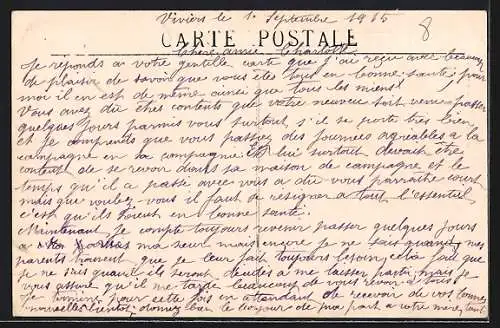 Viviers le 1. Septembre 1915
8
CARTE POSTALE
Chère amie Charlotte
Je reponds a votre gentille carte que j'ai reçue avec beaucoup
de plaisir de savoir que vous êtes tous en bonne santé; pour
moi il en est de même ainsi que tous les miens!
Vous avez du êtes contents que votre neuveu soit venu passer
quelques jours parmis vous surtout, s'il se porte très bien,
et je comprends que vous passiez des journees agreables a la
campagne en sa compagnie Et lui surtout devait être
content de se revoir dans sa maison de campagne et le
temps qu'il a passé avec vous a du vous parraitre court
mais que voulez-vous il faut se resigner a tout l'essentiel
c'est qu'ils soient en bonne santé.
Maintenant je compte toujours revenir passer quelques jours
a ma sœur mais encore je ne sais quand, mes
parents trouvent que je leur fait toujours besoin; cela fait que
je ne sais quand ils seront decidés a me laisser partir; mais je
vous assure qu'il me tarde beaucoup de vous revoir a tous
Je termine pour cette fois en attendant de recevoir de vos bonnes
nouvelles bientôt; donnez bien le bonjour de ma part a votre mere, tant